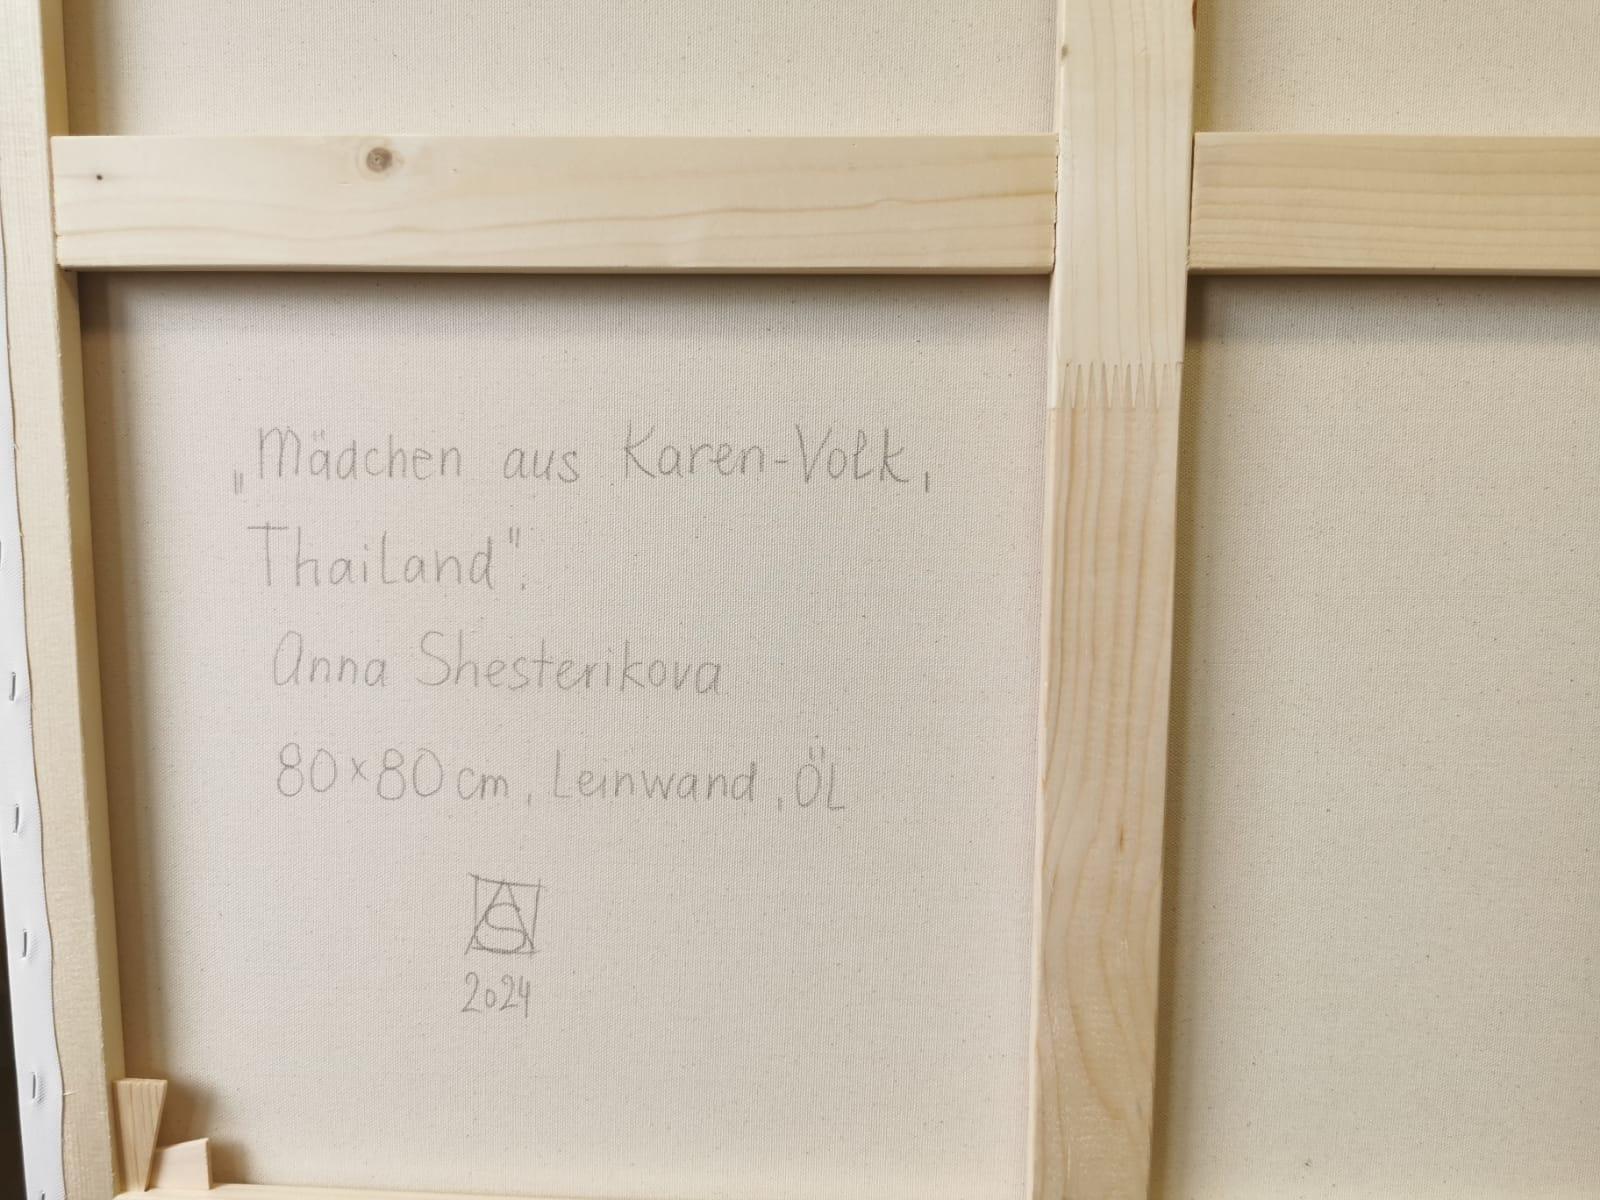 „Mädchen aus Karen-Volk,
Thailand".
Anna Shesterikova
80×80 cm, Leinwand, ÖL
AS
2024